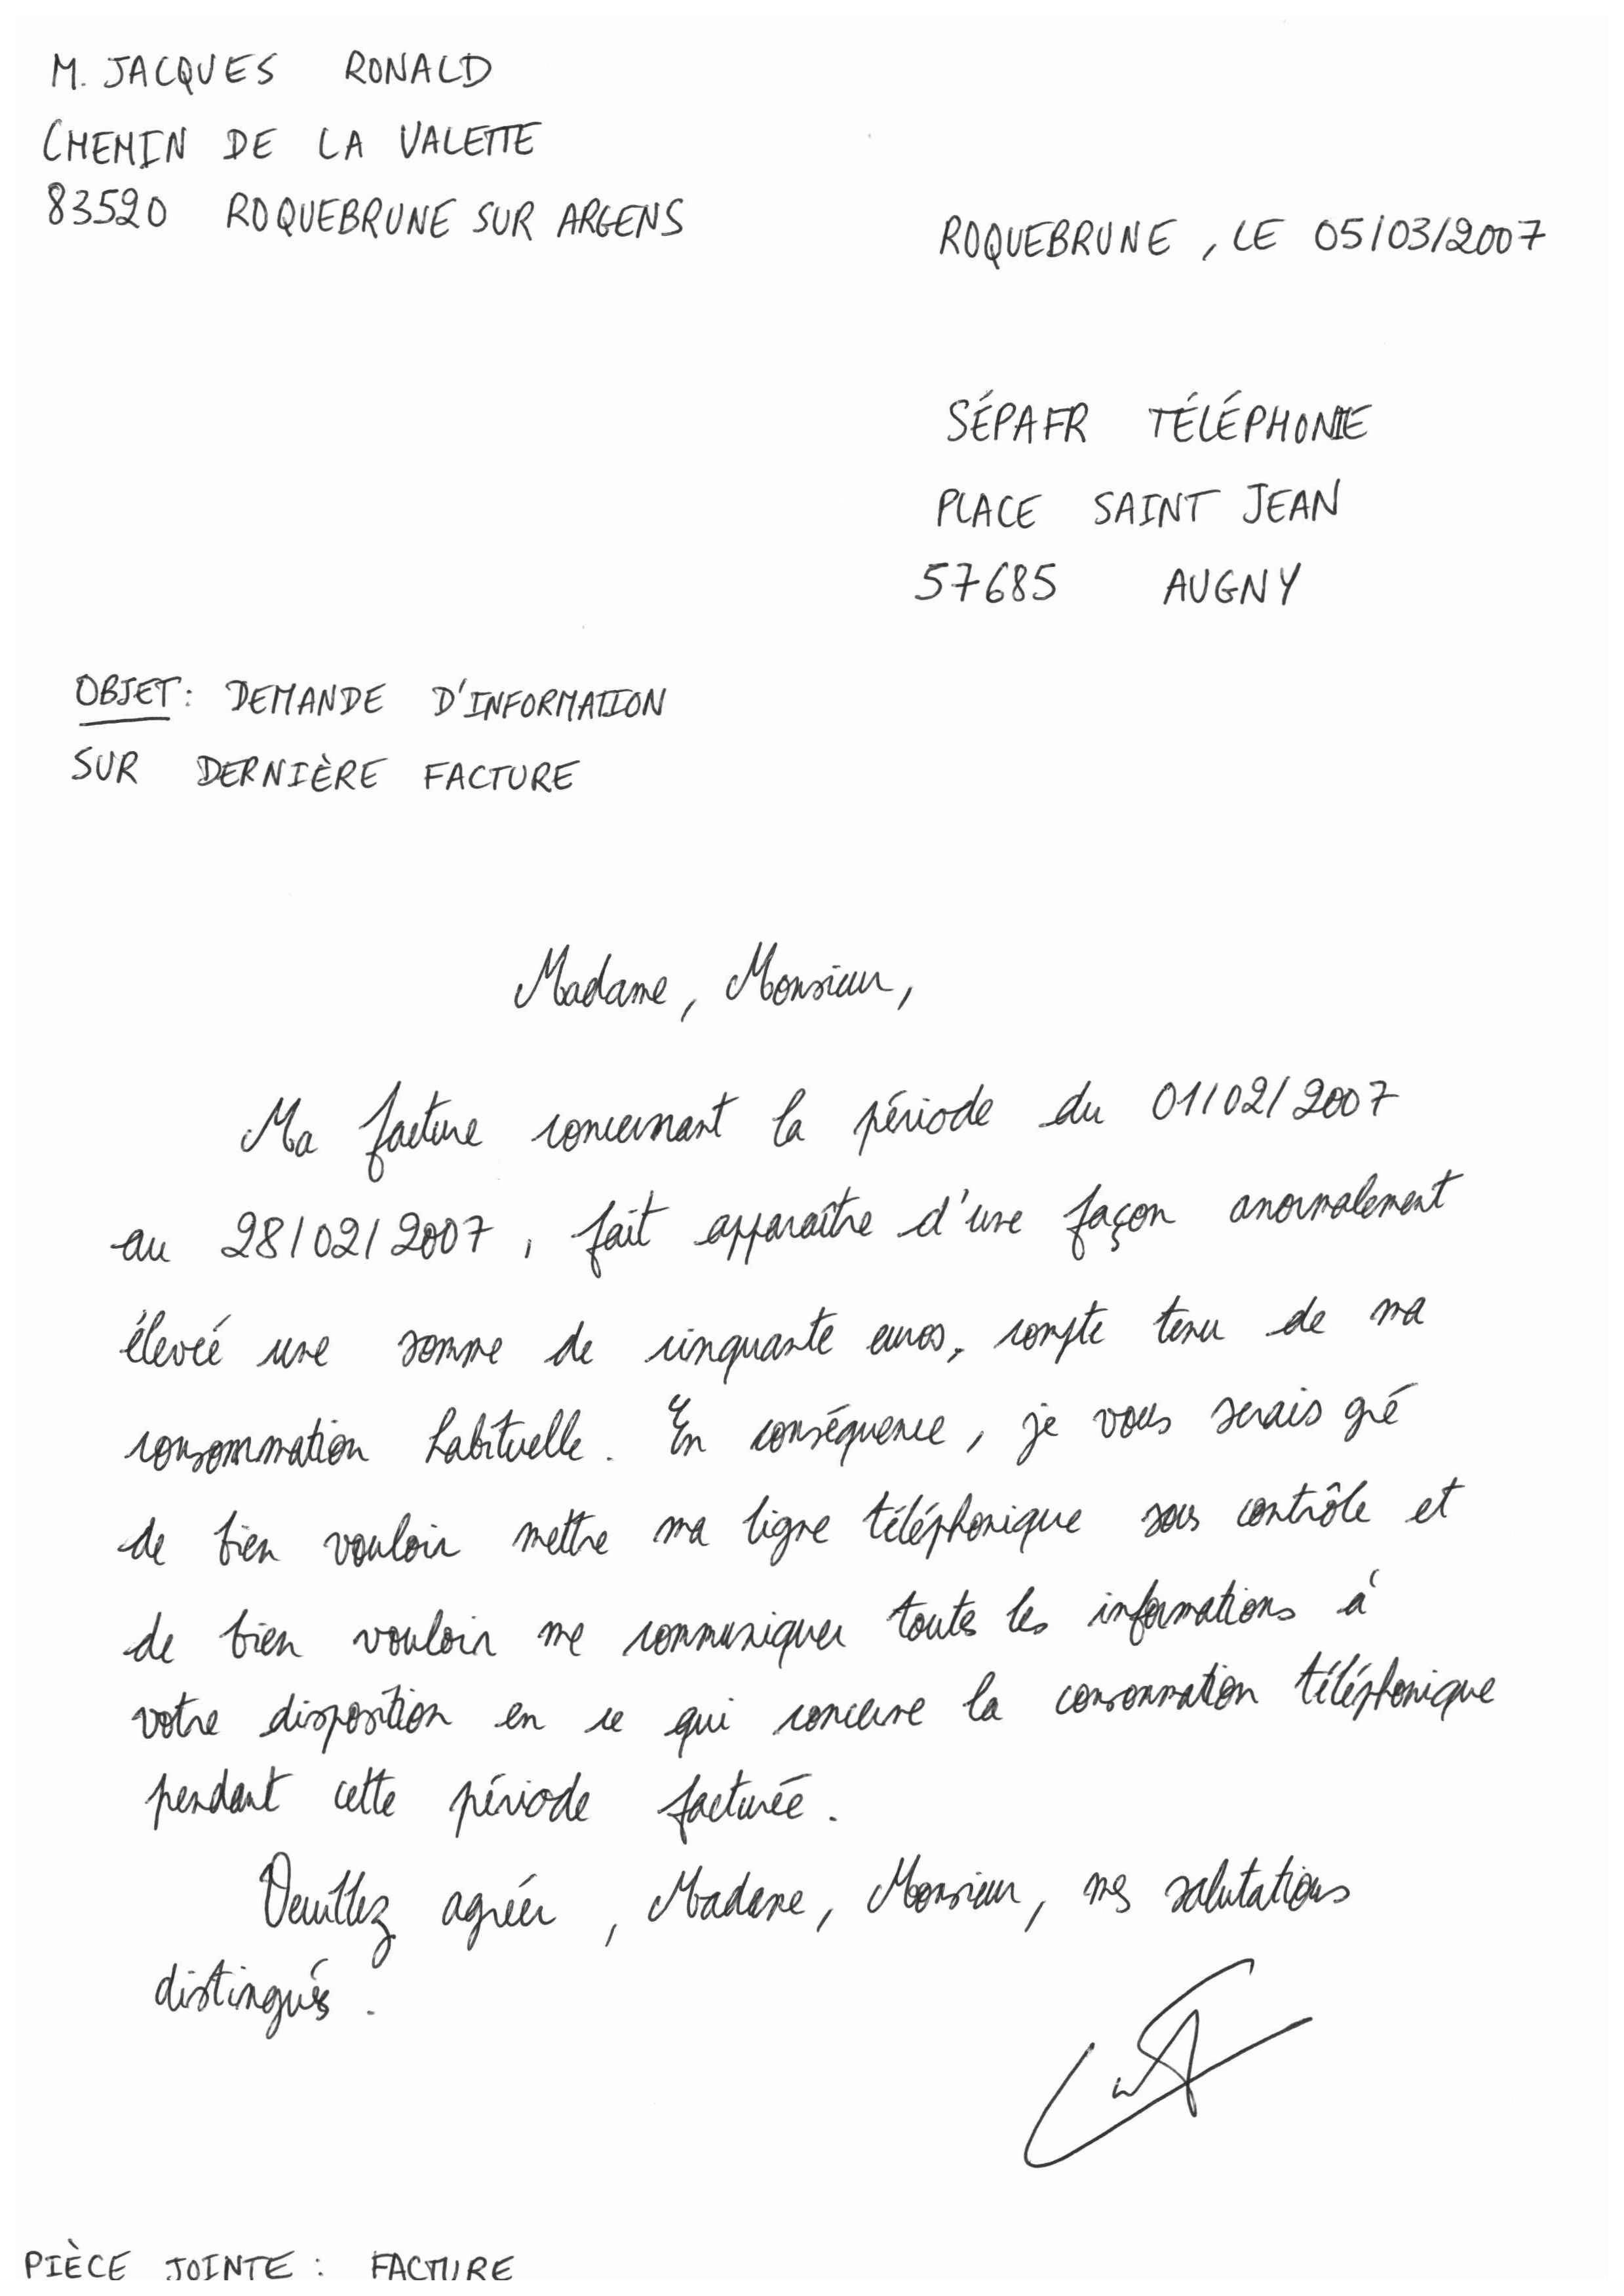 M. JACQUES RONALD
CHEMIN DE LA VALETTE
83520 ROQUEBRUNE SUR ARGENS
ROQUEBRUNE, LE 05/03/2007
SÉPAFR TÉLÉPHONIE
PLACE SAINT JEAN
57685 AUGNY
OBJET: DEMANDE D'INFORMATION
SUR DERNIÈRE FACTURE
Madame, Monsieur,
Ma facture concernant la période du 01/02/2007
au 28/02/2007, fait apparaître d'une façon anormalement
élevéé une somme de cinquante euros, compte tenu de ma
consommation habituelle. En conséquence, je vous serais gré
de bien vouloir mettre ma ligne téléphonique sous contrôle et
de bien vouloir me communiquer toutes les informations à
votre disposition en ce qui concerne la consommation téléphonique
pendant cette période facturée.
Veuillez agréer, Madame, Monsieur, mes salutations
distingués.
PIÈCE JOINTE : FACTURE